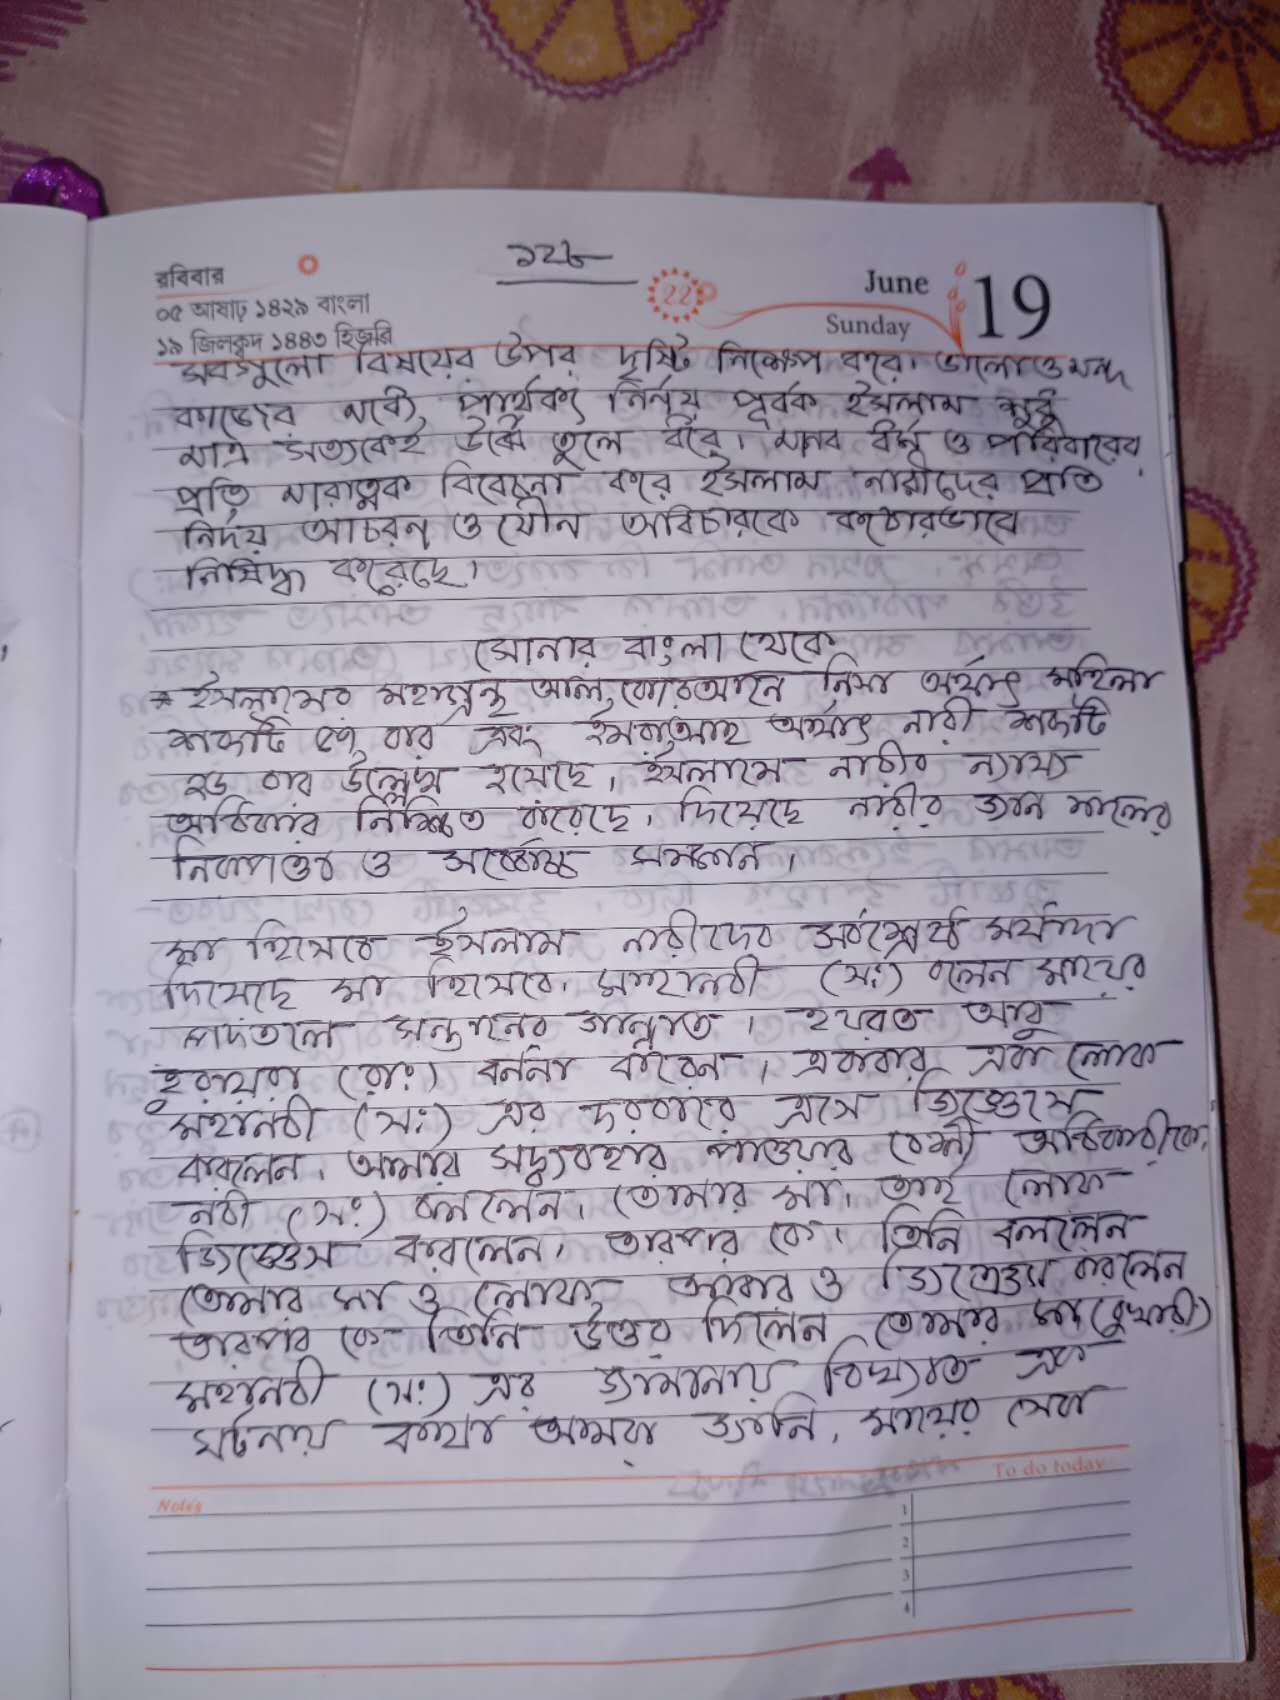 ১২৮
রবিবার
০৫ আষাঢ় ১৪২৯ বাংলা
১৯ জিলক্বদ ১৪৪৩ হিজরি
22
June
Sunday
19
সবগুলো বিষয়ের উপর দৃষ্টি নিক্ষেপ করে। ভালো ও মন্দ
কাজের মধ্যে পার্থক্য নির্নয় পূর্বক ইসলাম শুধু
মাত্র সত্যকেই উর্ধ্বে তুলে ধরে। মানব ধর্ম ও পরিবারের
প্রতি মারাত্মক বিবেচনা করে ইসলাম নারীদের প্রতি
নির্দয় আচরন ও যৌন অবিচারকে কঠোরভাবে
নিষিদ্ধ করেছে।
সোনার বাংলা থেকে
* ইসলামের মহাগ্রন্থ আল কোরআনে নিসা অর্থাৎ মহিলা
শব্দটি ৫৭ বার এবং ইমরাআহ অর্থাৎ নারী শব্দটি
২৬ বার উল্লেখ হয়েছে। ইসলামে নারীর ন্যায্য
অধিকার নিশ্চিত করেছে। দিয়েছে নারীর জান মালের
নিরাপত্তা ও সর্বোচ্চ সম্মান।
মা হিসেবে ইসলাম নারীদের সর্বশ্রেষ্ঠ মর্যাদা
দিয়েছে মা হিসেবে। মহানবী (সঃ) বলেন মায়ের
পদতলে সন্তানের জান্নাত। হযরত আবু
হুরায়রা (রাঃ) বর্ননা করেন। একবার এক লোক
মহানবী (সঃ) এর দরবারে এসে জিজ্ঞেস
করলেন। আমার সদ্ব্যবহার পাওয়ার বেশী অধিকারী কে।
নবী (সঃ) বললেন। তোমার মা। ঐ লোক
জিজ্ঞেস করলেন। তারপর কে। তিনি বললেন
তোমার মা ও লোক আবার ও জিজ্ঞেস করলেন
তারপর কে তিনি উত্তর দিলেন তোমার মা (বুখারী)
মহানবী (সঃ) এর জামানায় বিখ্যাত এক
ঘটনায় কথা আমরা জানি, মায়ের সেবা
Notes
To do today
1
2
3
4